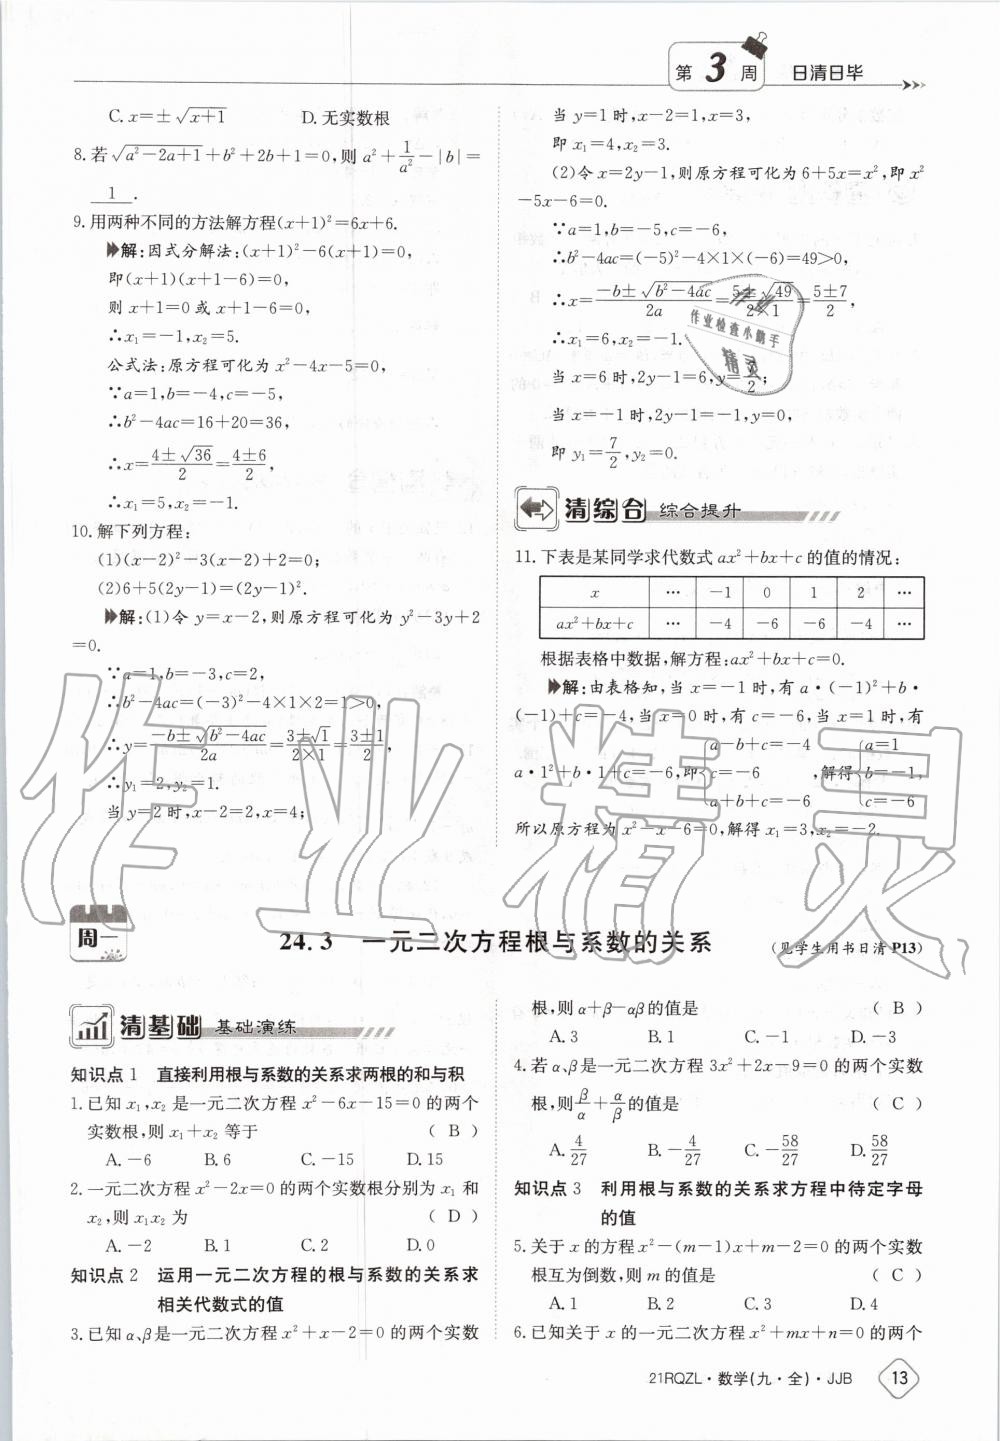 第3周 日清日毕
C. x=±√(x+1) D. 无实数根
8. 若√(a²-2a+1)+b²+2b+1=0,则 a²+1/a²-|b|=
1.
9. 用两种不同的方法解方程(x+1)²=6x+6.
解:因式分解法:(x+1)²-6(x+1)=0,
即(x+1)(x+1-6)=0,
则 x+1=0 或 x+1-6=0,
∴x₁=-1,x₂=5.
公式法:原方程可化为 x²-4x-5=0,
∵a=1,b=-4,c=-5,
∴b²-4ac=16+20=36,
∴x=(4±√36)/2=(4±6)/2,
∴x₁=5,x₂=-1.
10. 解下列方程:
(1)(x-2)²-3(x-2)+2=0;
(2)6+5(2y-1)=(2y-1)².
解:(1)令 y=x-2,则原方程可化为 y²-3y+2
=0.
∵a=1,b=-3,c=2,
∴b²-4ac=(-3)²-4×1×2=1>0,
∴y=(-b±√(b²-4ac))/2a=(3±√1)/(2×1)=(3±1)/2,
∴y₁=2,y₂=1.
当 y=2 时,x-2=2,x=4;
当 y=1 时,x-2=1,x=3,
即 x₁=4,x₂=3.
(2)令 x=2y-1,则原方程可化为 6+5x=x²,即 x²
-5x-6=0.
∵a=1,b=-5,c=-6,
∴b²-4ac=(-5)²-4×1×(-6)=49>0,
∴x=(-b±√(b²-4ac))/2a=(5±√49)/(2×1)=(5±7)/2,
∴x₁=6,x₂=-1.
当 x=6 时,2y-1=6,y=/2;
当 x=-1 时,2y-1=-1,y=0,
即 y₁=7/2,y₂=0.
作业检查小助手
精灵
清综合 综合提升
11. 下表是某同学求代数式 ax²+bx+c 的值的情况:
x … -1 0 1 2 …
ax²+bx+c … -4 -6 -6 -4 …
根据表格中数据,解方程:ax²+bx+c=0.
解:由表格知,当 x=-1 时,有 a·(-1)²+b·
(-1)+c=-4,当 x=0 时,有 c=-6,当 x=1 时,有
a-b+c=-4 a=1
a·1²+b·1+c=-6,即{c=-6 ,解得{b=-1,
a+b+c=-6 c=-6
所以原方程为 x²-x-6=0,解得 x₁=3,x₂=-2.
作业精灵
周一 24.3 一元二次方程根与系数的关系 (见学生用书日清P13)
清基础 基础演练
知识点 1 直接利用根与系数的关系求两根的和与积
1. 已知 x₁,x₂ 是一元二次方程 x²-6x-15=0 的两个
实数根,则 x₁+x₂ 等于 ( B )
A. -6 B. 6 C. -15 D. 15
2. 一元二次方程 x²-2x=0 的两个实数根分别为 x₁ 和
x₂,则 x₁x₂ 为 ( D )
A. -2 B. 1 C. 2 D. 0
知识点 2 运用一元二次方程的根与系数的关系求
相关代数式的值
3. 已知 α、β是一元二次方程 x²+x-2=0 的两个实数
根,则 α+β-αβ的值是 ( B )
A. 3 B. 1 C. -1 D. -3
4. 若 α、β是一元二次方程 3x²+2x-9=0 的两个实数
根,则 β/α+α/β 的值是 ( C )
A. 4/27 B. -4/27 C. -58/27 D. 58/27
知识点 3 利用根与系数的关系求方程中待定字母
的值
5. 关于 x 的方程 x²-(m-1)x+m-2=0 的两个实数
根互为倒数,则 m 的值是 ( C )
A. 1 B. 2 C. 3 D. 4
6. 已知关于 x 的一元二次方程 x²+mx+n=0 的两个
21RQZL·数学(九·全)·JJB 13